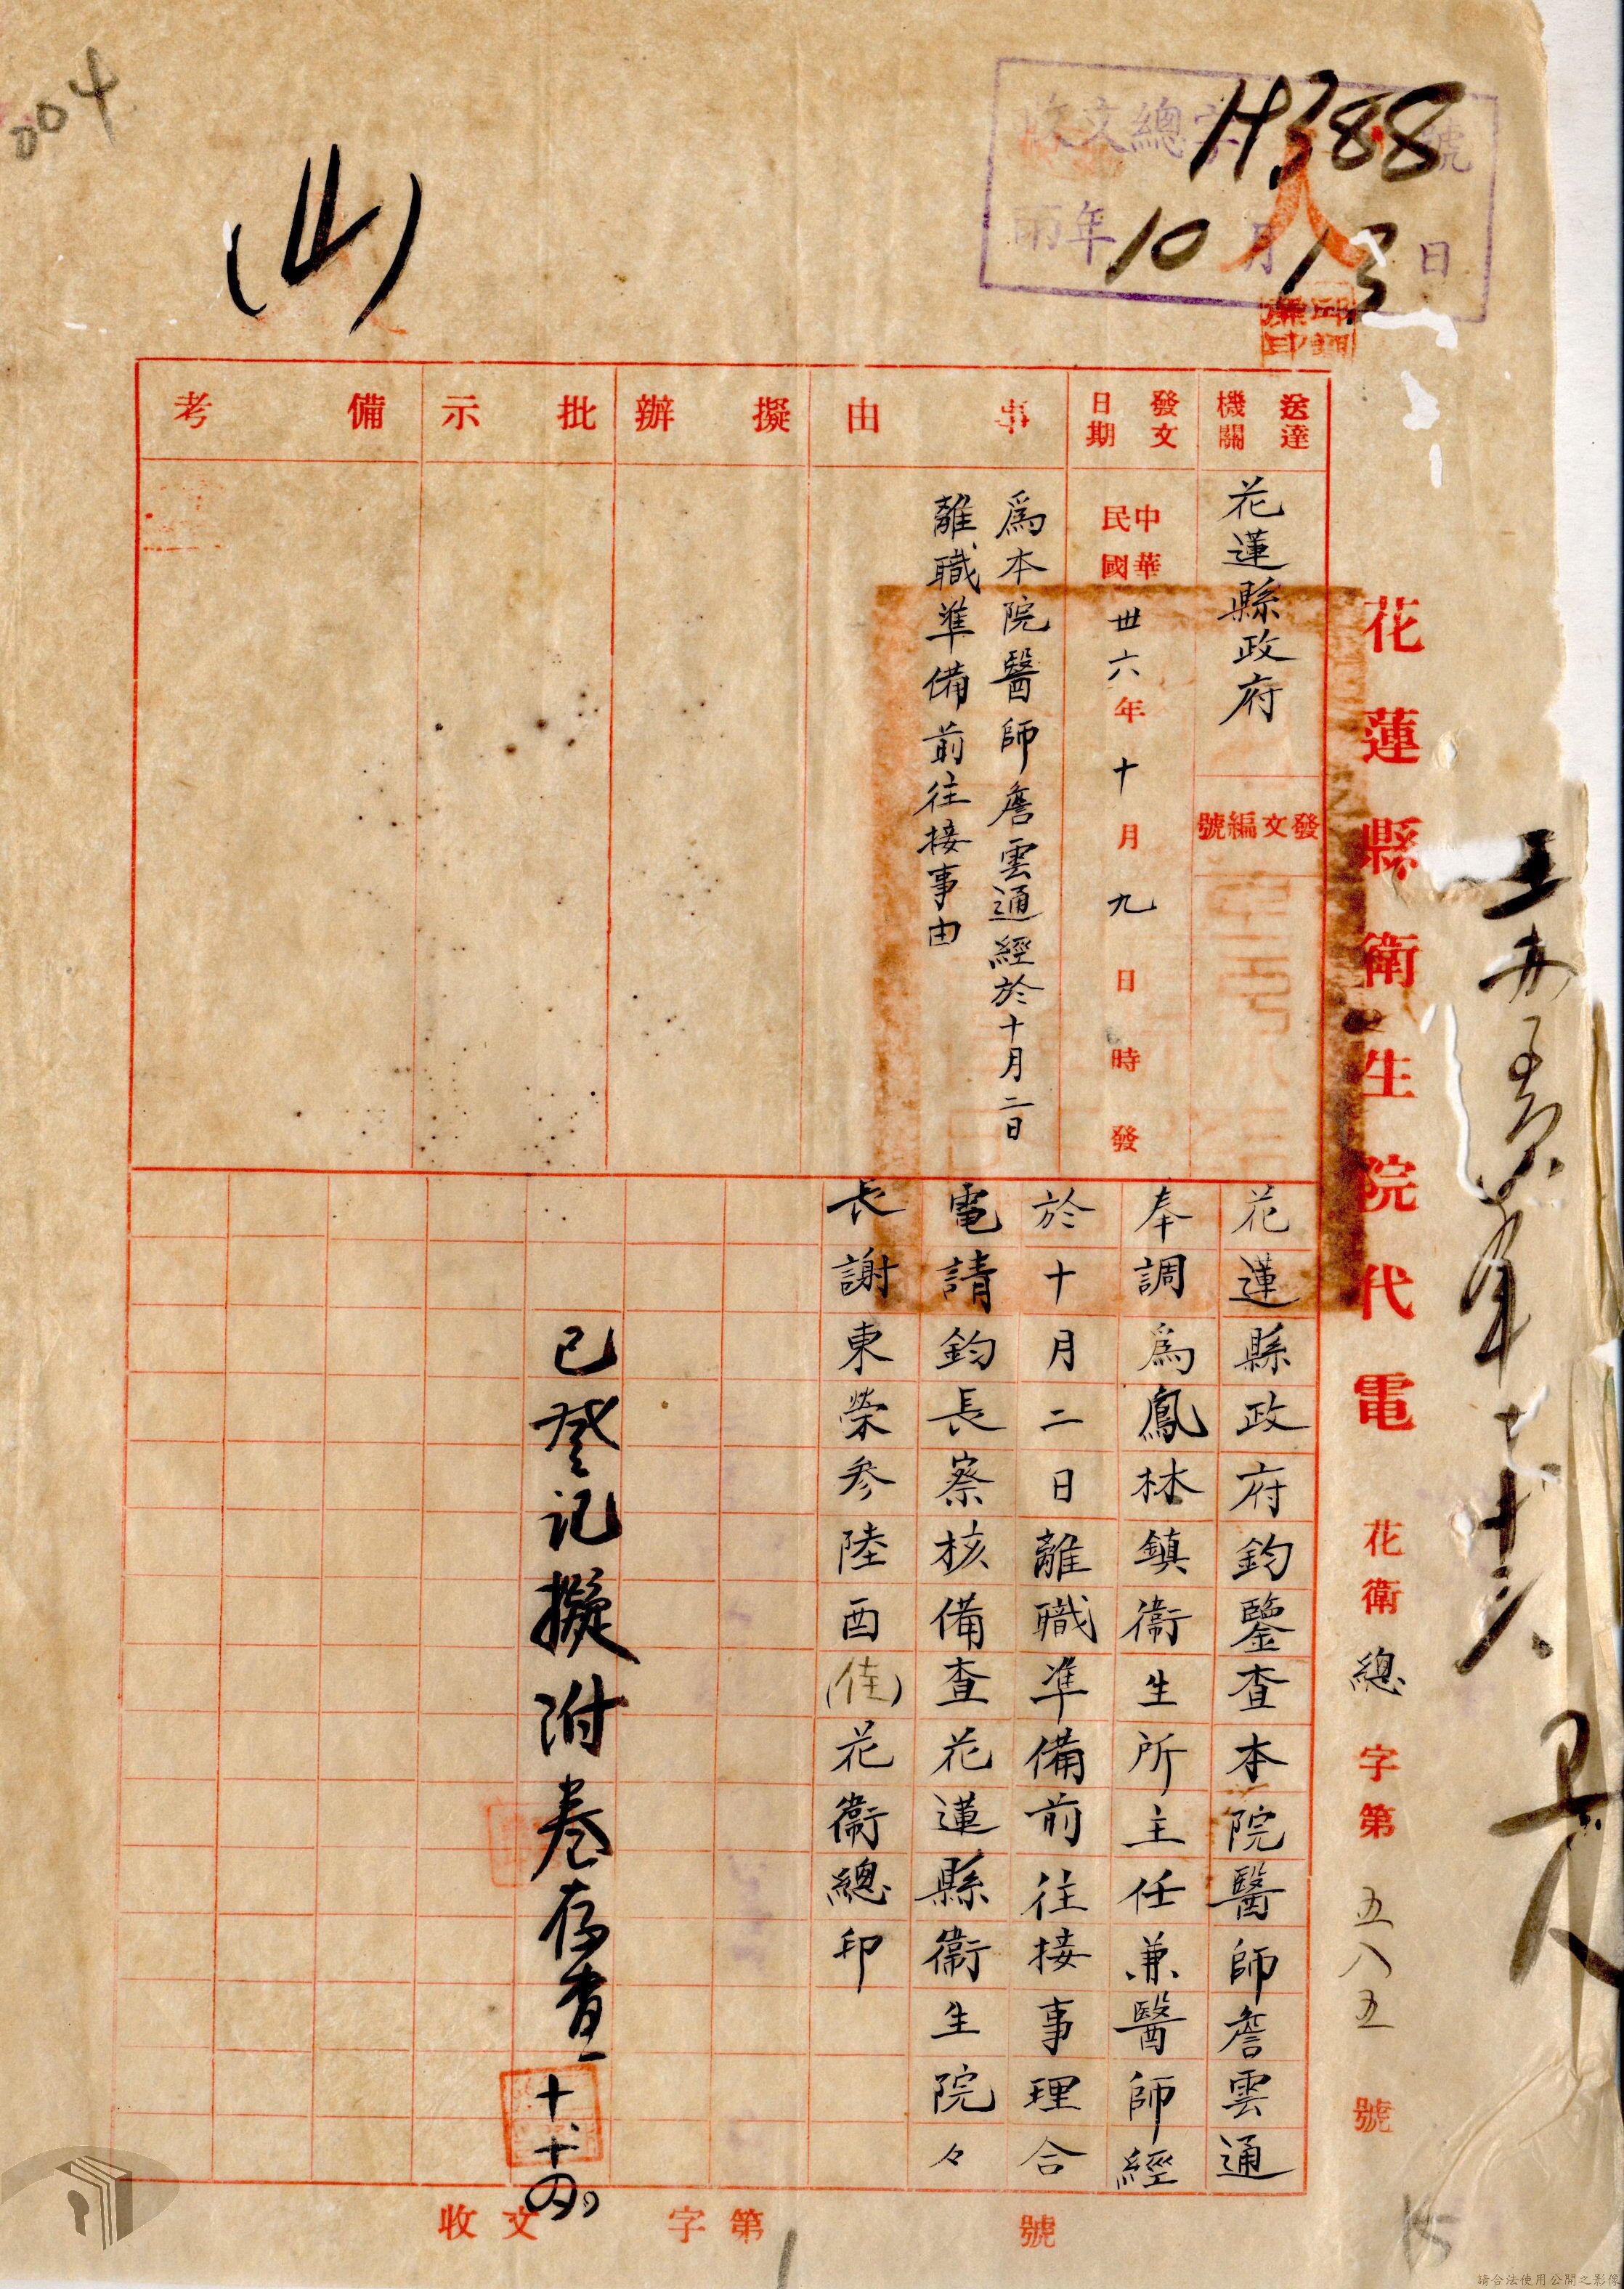 004
收文總字 14388 號
年 10 月 13 日
花蓮縣衛生院代電 花衛總字第五八五號
送達機關
花蓮縣政府
發文編號
發文日期
中華民國卅六年十月九日 時發
事由
為本院醫師詹雲通經於十月二日
離職準備前往接事由
擬辦
批示
備考
花蓮縣政府鈞鑒查本院醫師詹雲通
奉調為鳳林鎮衛生所主任兼醫師經
於十月二日離職準備前往接事理合
電請鈞長察核備查花蓮縣衛生院々
長謝東榮參陸酉(佳)花衛總印
已登記擬附卷存查
十、十四
收文 字第 號
15
請合法使用公開之影像